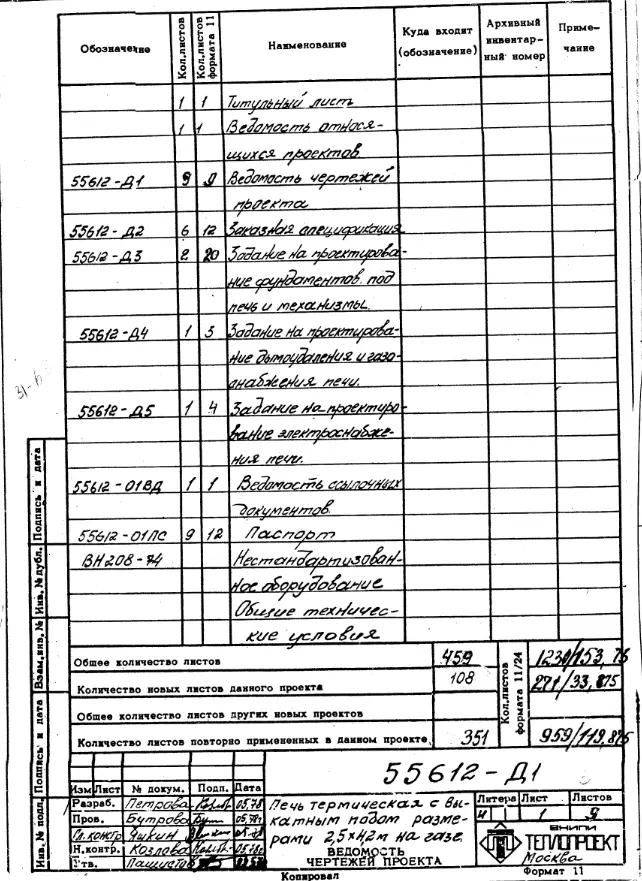 Обозначение Кол.листов Кол.листов формата 11 Наименование Куда входит (обозначение) Архивный инвентарный номер Примечание
1 1 Титульный лист
1 1 Ведомость относя-
щихся проектов
55612-Д1 9 9 Ведомость чертежей
проекта
55612-Д2 6 12 Заказная спецификация
55612-Д3 2 20 Задание на проектирова-
ние фундаментов под
печь и механизмы.
55612-Д4 1 5 Задание на проектирова-
ние дымоудаления и газо-
снабжения печи.
31-6
55612-Д5 1 4 Задание на проектиро-
вание электроснабже-
ния печи.
55612-01ВД 1 1 Ведомость ссылочных
документов
55612-01ПС 9 12 Паспорт
ВН208-74 Нестандартизован-
ное оборудование
Общие техничес-
кие условия
Общее количество листов 459 Кол.листов формата 11/24 1230/153,75
Количество новых листов данного проекта 108 271/33,875
Общее количество листов других новых проектов
Количество листов повторно примененных в данном проекте 351 959/119,875
55612-Д1
Изм Лист № докум. Подп. Дата
Разраб. Петрова 05.78
Пров. Бутрова 05.78
Гл.констр Чикин
Н.контр. Козлова 05.78
Утв.
Печь термическая с вы-
катным подом разме-
рами 2,5х4,2м на газе.
ВЕДОМОСТЬ
ЧЕРТЕЖЕЙ ПРОЕКТА
Литера Лист Листов
И 1 9
ВНИПИ
ТЕПЛОПРОЕКТ
Москва
Копировал Формат 11
Подпись и дата
Инв.№ дубл.
Взам.инв.№
Подпись и дата
Инв.№ подл.